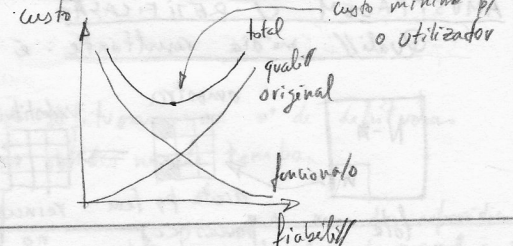 custo
custo mínimo p/
o utilizador
total
qualid//
original
funciona/o
fiabilid//